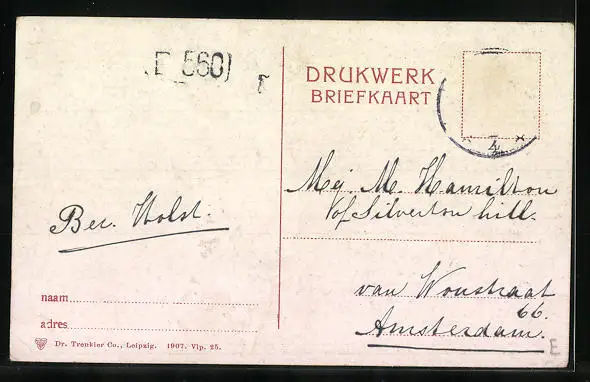 560)
DRUKWERK
BRIEFKAART
4
Mej. M. Hamilton
v/of Silverton hill.
Ber. Holst.
van Woustraat
66.
Amsterdam.
naam
adres
Dr. Trenkler Co., Leipzig. 1907. Vlp. 25.
E